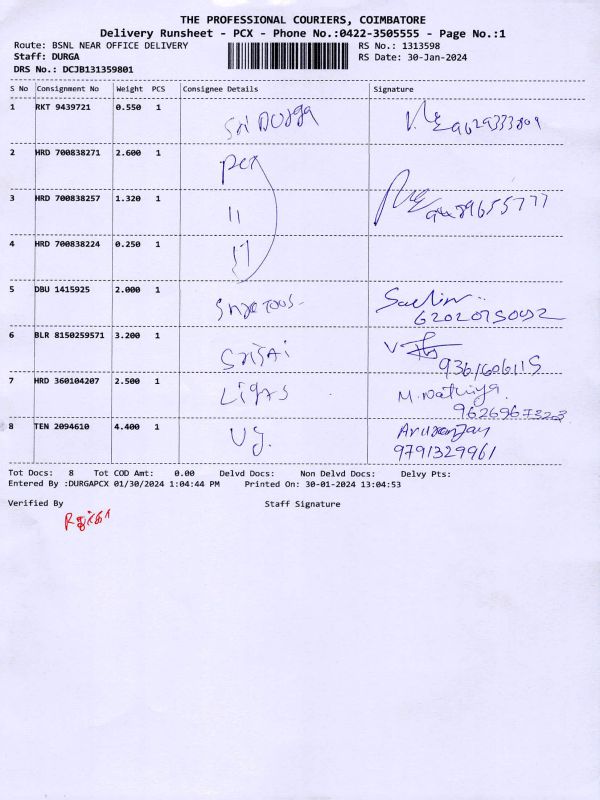 THE PROFESSIONAL COURIERS, COIMBATORE
Delivery Runsheet - PCX - Phone No.:0422-3505555 - Page No.:1
Route: BSNL NEAR OFFICE DELIVERY RS No.: 1313598
Staff: DURGA RS Date: 30-Jan-2024
DRS No.: DCJB131359801
S No Consignment No Weight PCS Consignee Details Signature
1 RKT 9439721 0.550 1 Sri Durga
2 HRD 700838271 2.600 1
3 HRD 700838257 1.320 1 11
4 HRD 700838224 0.250 1
5 DBU 1415925 2.000 1
6202075092
6 BLR 8150259571 3.200 1 SriSAi
9361606115
7 HRD 360104207 2.500 1 M. Nathiya
9626967323
8 TEN 2094610 4.400 1
9791329961
Tot Docs: 8 Tot COD Amt: 0.00 Delvd Docs: Non Delvd Docs: Delvy Pts:
Entered By :DURGAPCX 01/30/2024 1:04:44 PM Printed On: 30-01-2024 13:04:53
Verified By Staff Signature